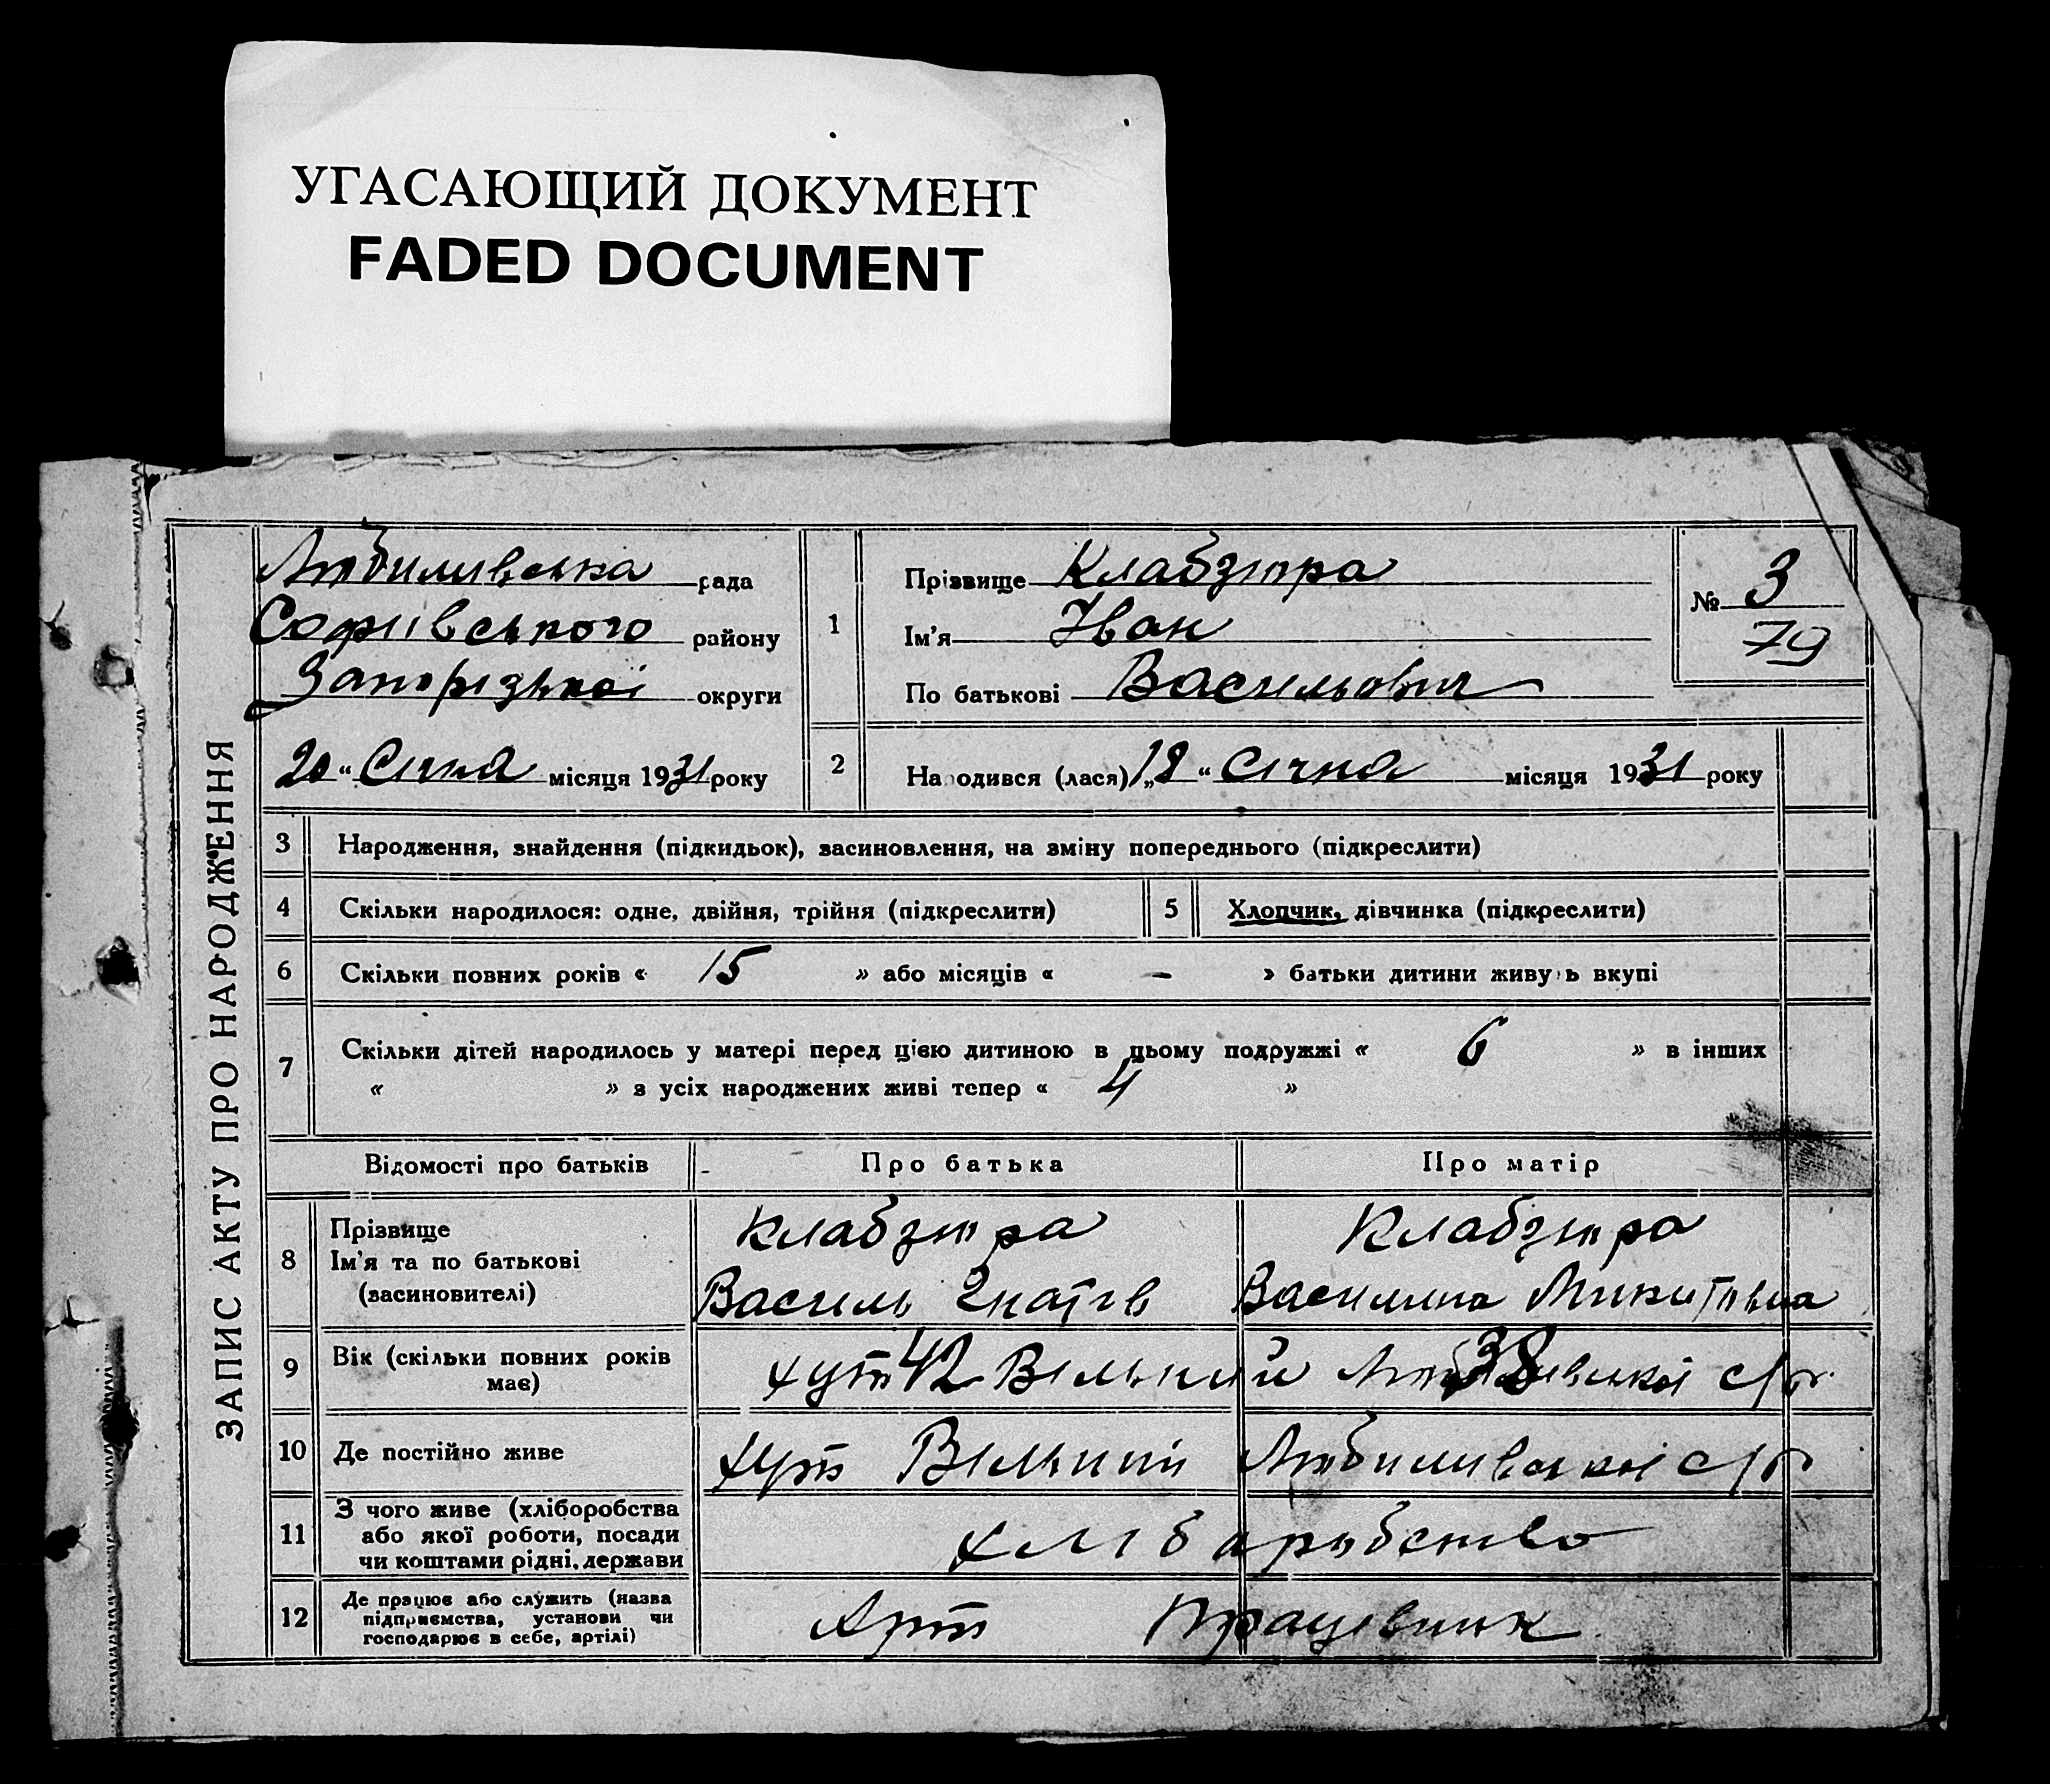 УГАСАЮЩИЙ ДОКУМЕНТ
FADED DOCUMENT
ЗАПИС АКТУ ПРО НАРОДЖЕННЯ
Любимівська рада
Софіївського району
Запорізької округи
20 “ Січня місяця 1931 року
1
Прізвище Клабзтра
Ім'я Іван
По батькові Васильович
№ 3
79
2
Народився (лася) „18 “ Січня місяця 1931 року
3 Народження, знайдення (підкидьок), засиновлення, на зміну попереднього (підкреслити)
4 Скільки народилося: одне, двійня, трійня (підкреслити)
5 Хлопчик, дівчинка (підкреслити)
6 Скільки повних років « 15 » або місяців « — » батьки дитини живуть вкупі
7 Скільки дітей народилось у матері перед цією дитиною в цьому подружжі « 6 » в інших
« » з усіх народжених живі тепер « 4 »
Відомості про батьків Про батька Про матір
8 Прізвище
Ім'я та по батькові
(засиновителі)
Клабзтра
Василь Гнатів
Клабзтра
Василина Микитівна
9 Вік (скільки повних років
має)
хут 42 Вільний 38 с/р
10 Де постійно живе хут Вільний Любимівської с/р
11 З чого живе (хліборобства
або якої роботи, посади
чи коштами рідні, держави
хліборобство
12 Де працює або служить (назва
підприємства, установи чи
господарює в себе, артілі)
Арт Працівник